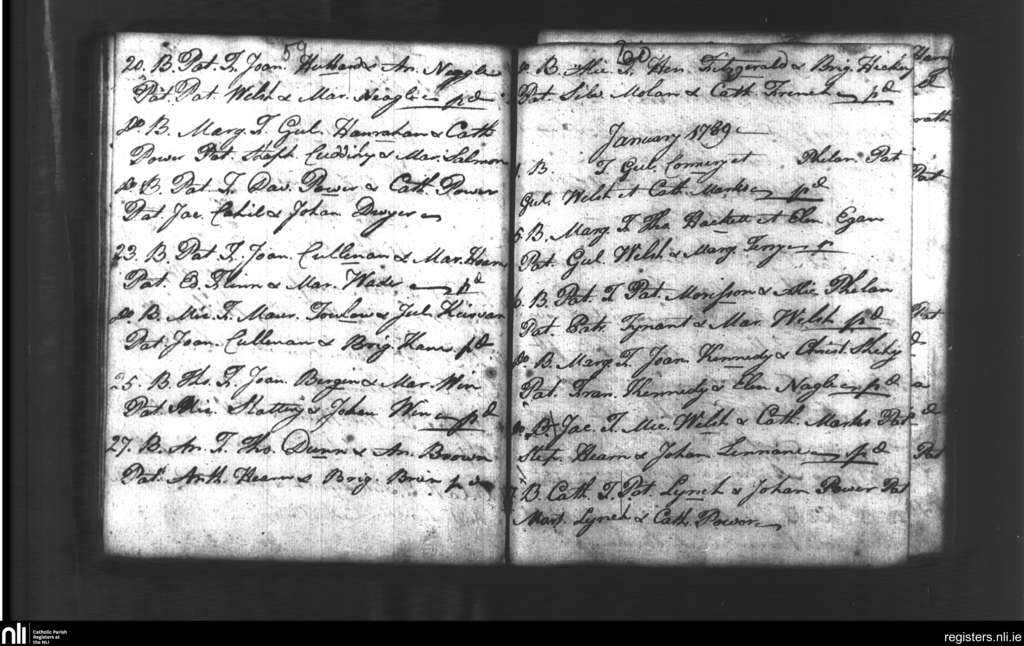 59
20. B. Pat. F. Joan Holland & An. Neagle
Pat. Pat. Welsh & Mar. Neagle pd
do B. Marg. F. Gul. Hanrahan & Cath
Power Pat. Steph. Cuddihy & Mar. Salmon
do B. Pat. F. Dav. Power & Cath. Power
Pat. Jac. Cahil & Johan Dwyer
23. B. Pat. F. Joan. Cullenan & Mar. Hearn
Pat. Ed. Flinn & Mar. Wade pd
do B. Mic. F. Maur. Jul. Keirvan
Pat. Joan. Cullenan & Brig. Kane pd
25. B. Tho. F. Joan. Bergin & Mar. Win
Pat. Mic. Slattery & Johan Win pd
27. B. An. F. Tho. Dunn & An. Brown
Pat. Anth. Hearn & Brig. Brien pd
60
do B. Alic F. Hen. Fitzgerald & Brig. Hickey
Pat. Silv. Molan & Cath. pd
January 1789
1. B. F. Gul. Comery et Phelan Pat
Gul. Welsh et Cath. Marks pd
5. B. Marg. F. Tho Hackett et Elen Egan
Pat. Gul. Welsh & Marg. Terry
6. B. Pat. F. Pat. Morisson & Alic Phelan
Pat. Patr. Tynant & Mar. Welsh pd
do B. Marg. F. Joan Kennedy & Christ Shehy
Pat. Fran. Kennedy & Elen Nagle pd
do B. Jac. F. Mic. Welsh & Cath. Marks Pat
Step. Hearn & Johan Lennane pd
7. B. Cath. F. Pat. Lynch & Johan Power Pat
Mart. Lynch & Cath. Power
rath
Pat
Pat
a
Pat
nli
Catholic Parish
Registers at
the NLI
registers.nli.ie